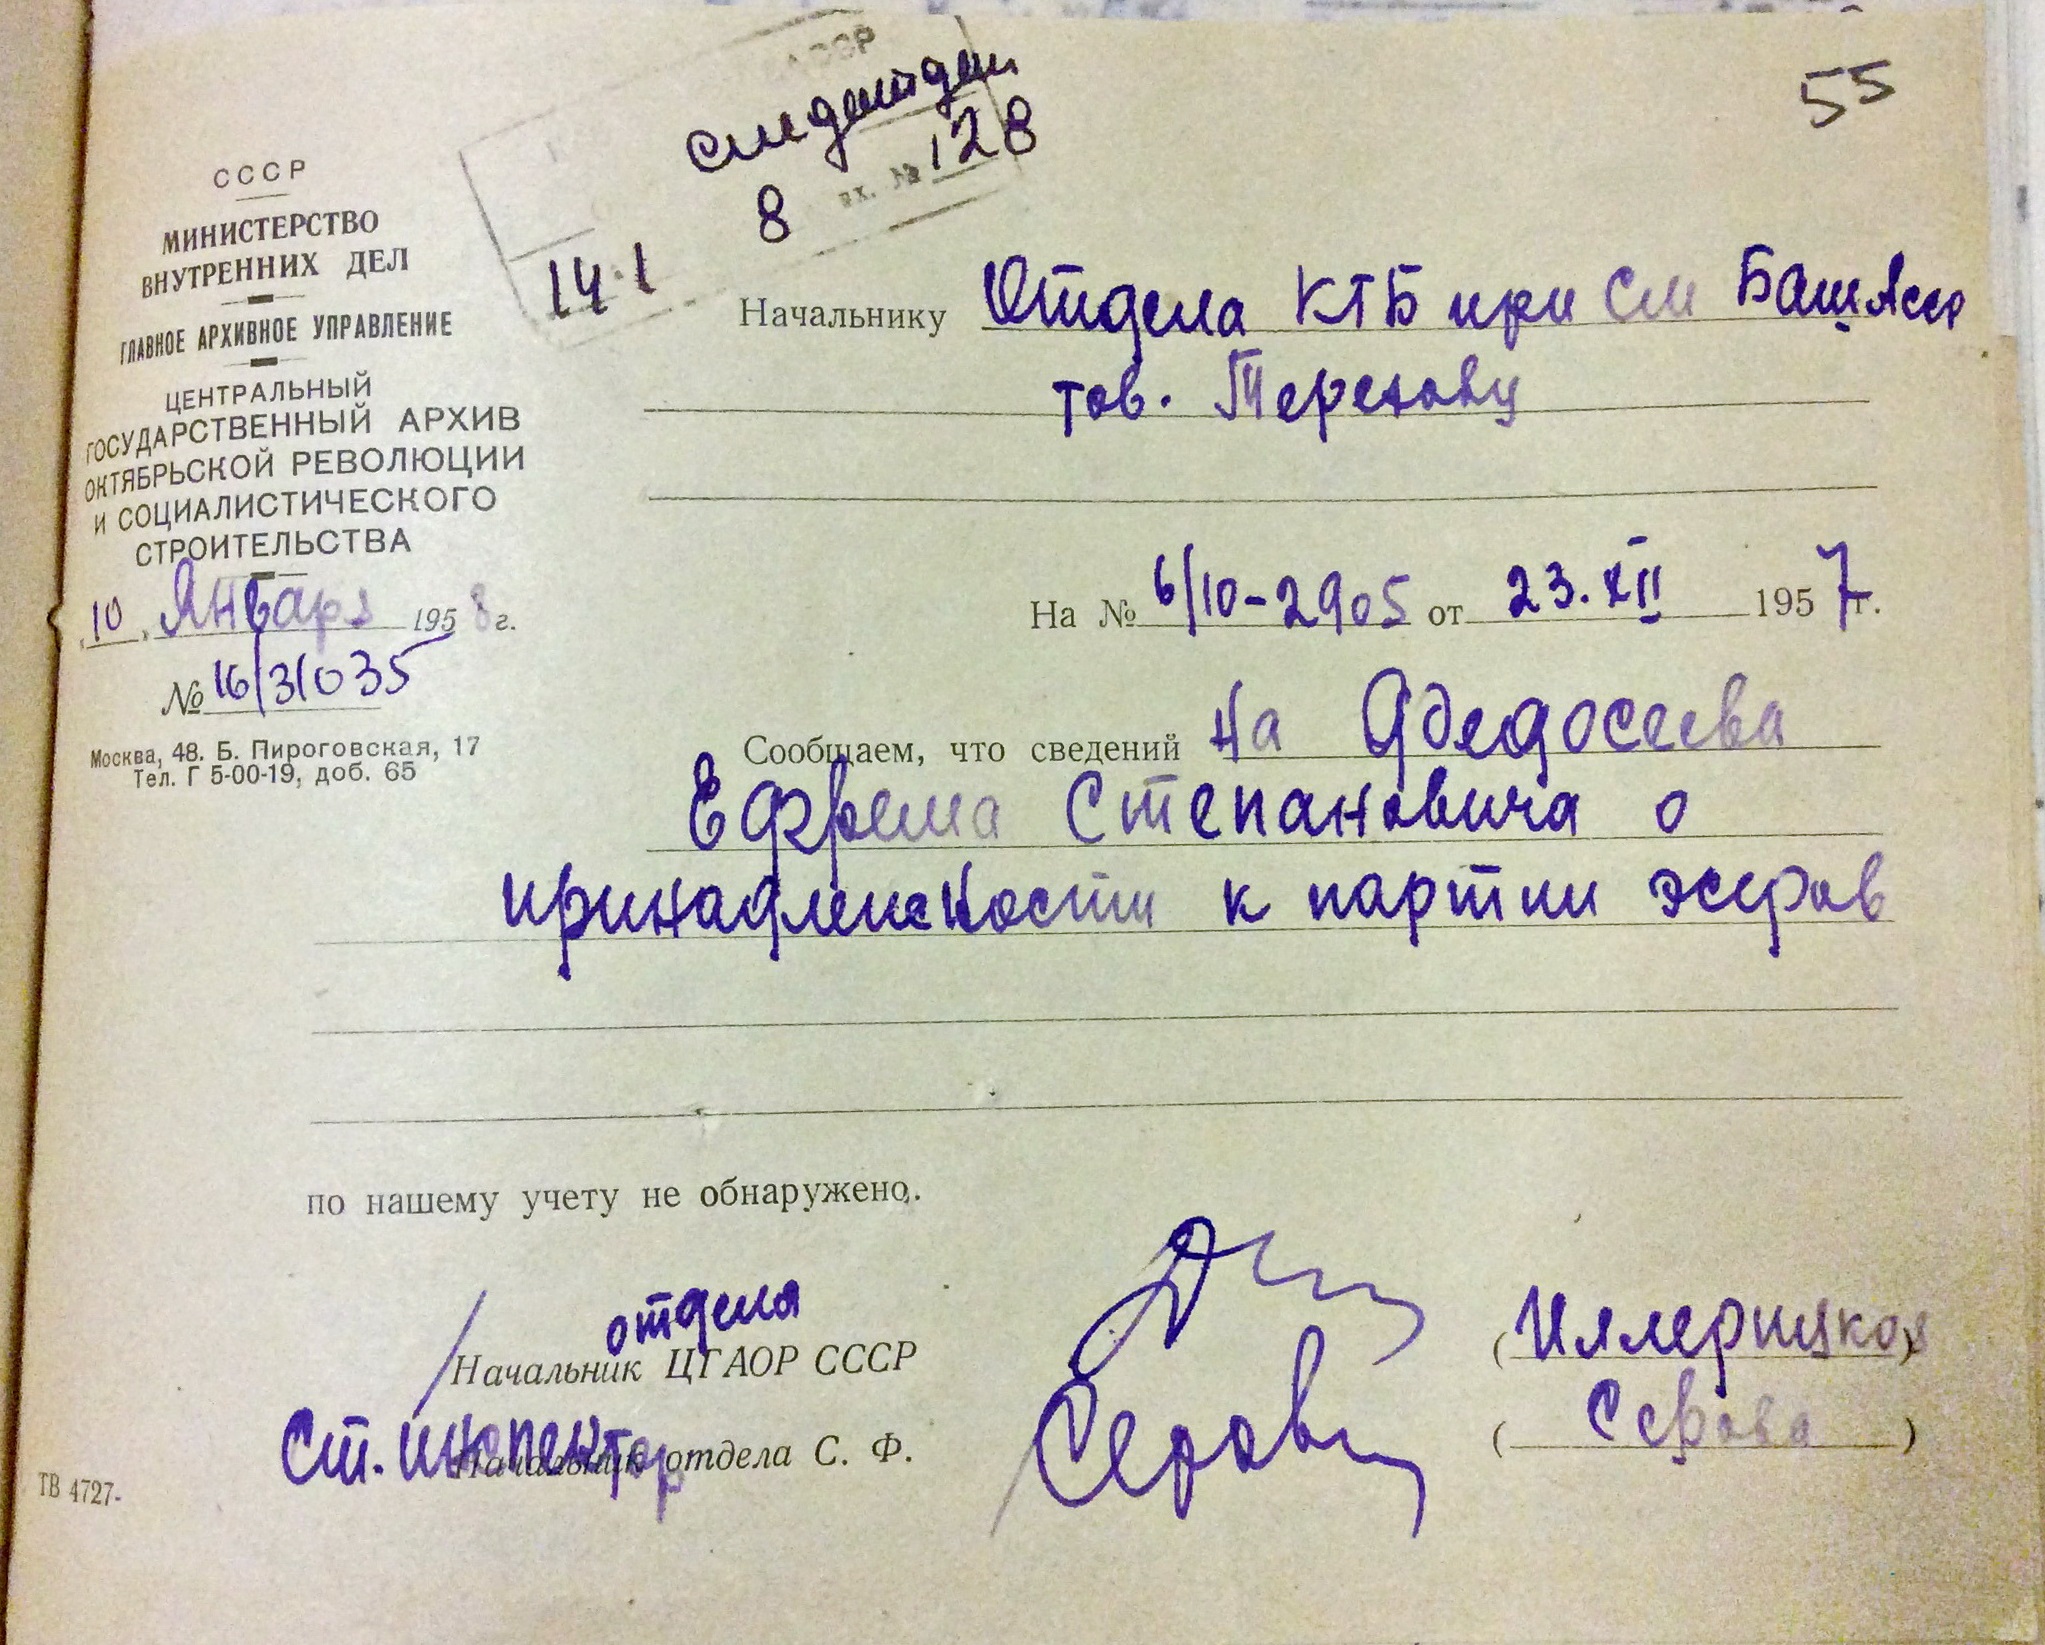 55
8 вх. № 128
14.1
СССР
МИНИСТЕРСТВО
ВНУТРЕННИХ ДЕЛ
ГЛАВНОЕ АРХИВНОЕ УПРАВЛЕНИЕ
ЦЕНТРАЛЬНЫЙ
ГОСУДАРСТВЕННЫЙ АРХИВ
ОКТЯБРЬСКОЙ РЕВОЛЮЦИИ
И СОЦИАЛИСТИЧЕСКОГО
СТРОИТЕЛЬСТВА
10 Января 1958 г.
№ 16/31035
Москва, 48. Б. Пироговская, 17
Тел. Г 5-00-19, доб. 65
Начальнику Отдела КГБ при См БашАсср
тов.
На № 6/10-2905 от 23.XII 1957 г.
Сообщаем, что сведений на Ффедосеева
Ефрема Степановича о
принадлежности к партии эсеров
по нашему учету не обнаружено.
отдела
Начальник ЦГАОР СССР (Иллерицкая)
Ст. инспектор
Начальник отдела С. Ф. Серов (Серова)
ТВ 4727-